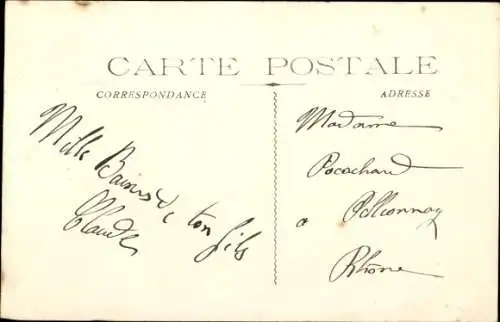 CARTE POSTALE
CORRESPONDANCE
ADRESSE
Mille Baisers de ton fils
Claude
Madame
Pocachard
a Pollionnay
Rhône